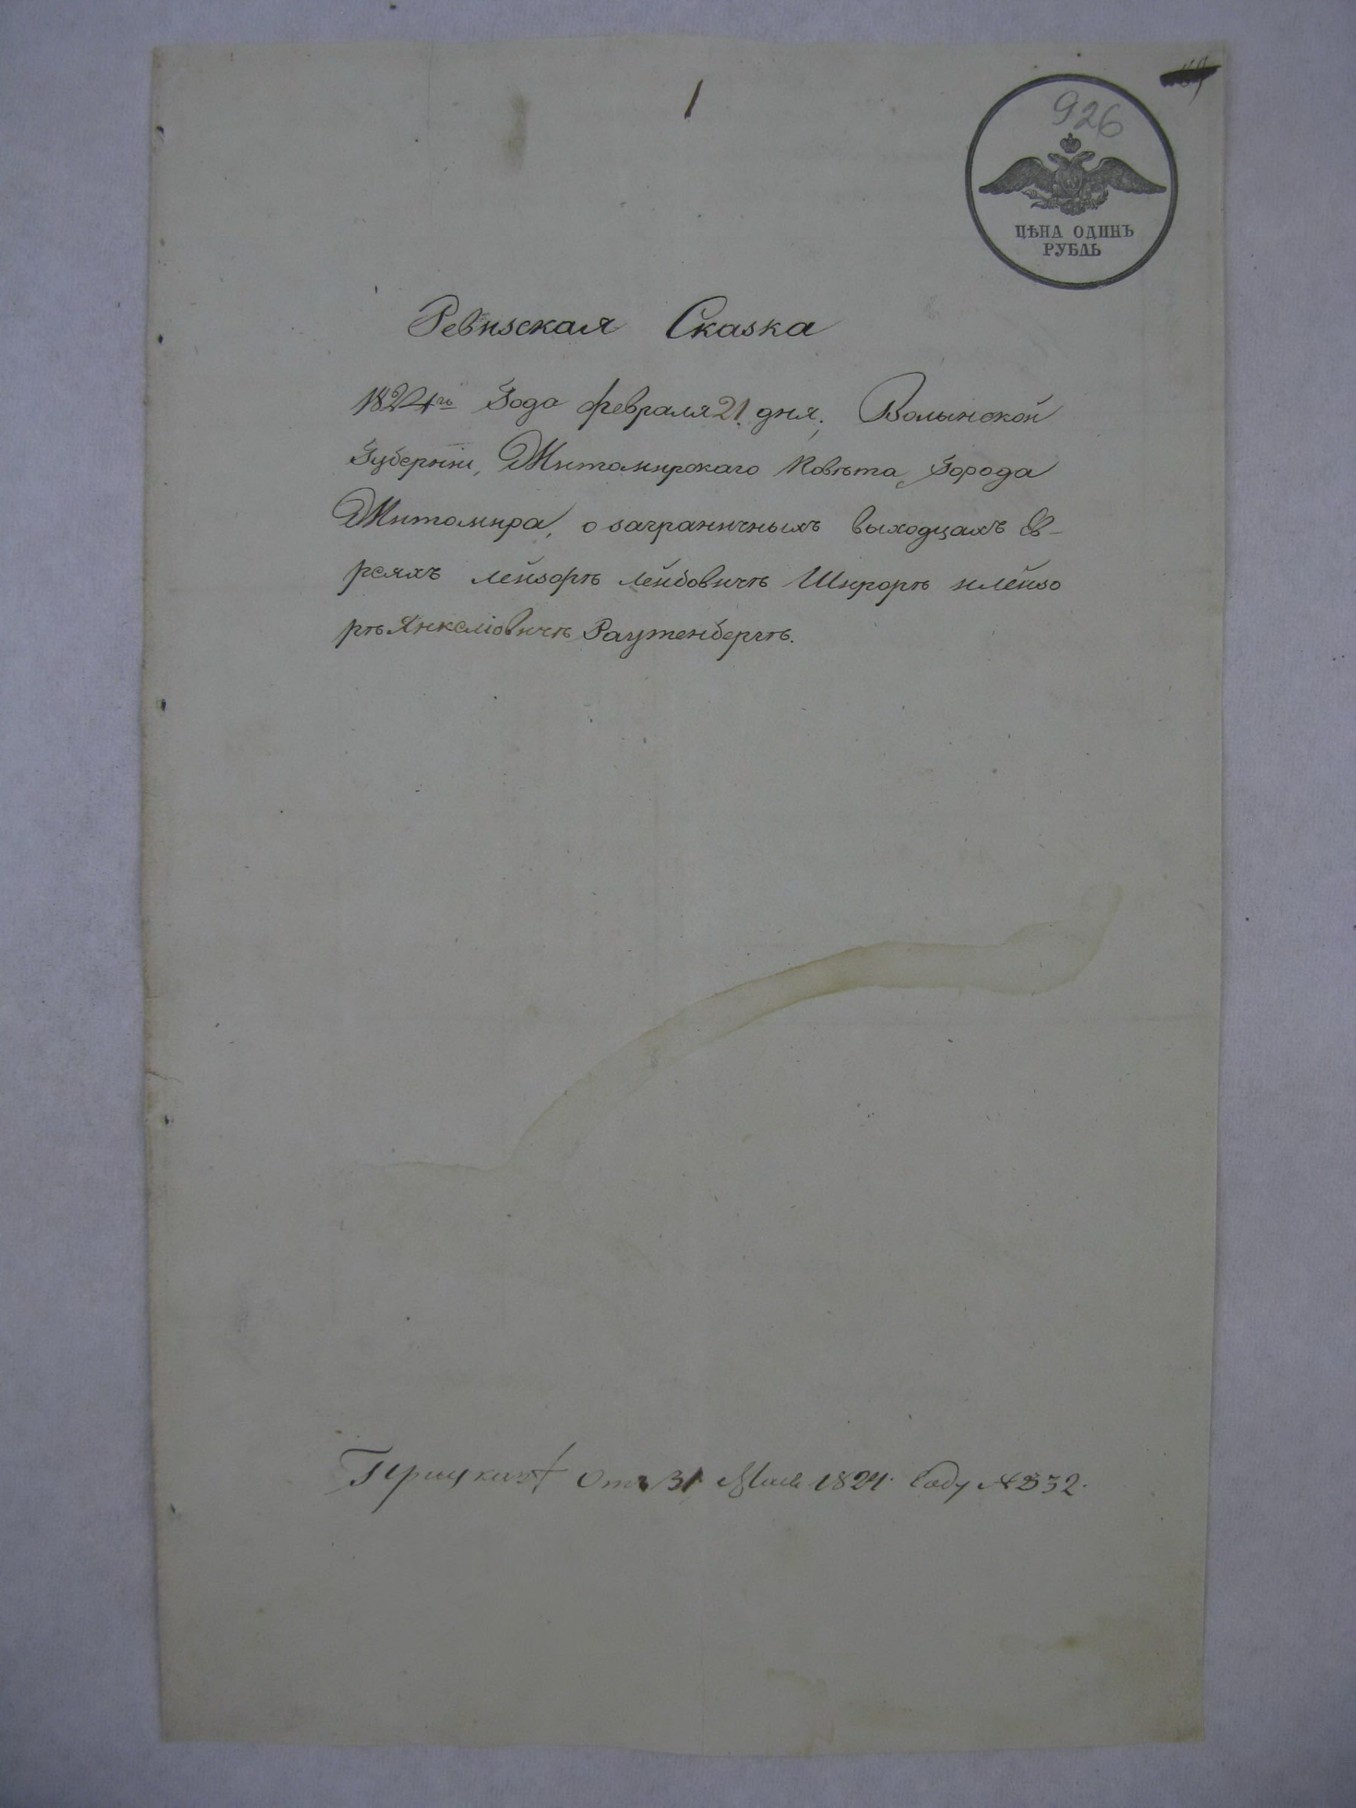 1
926
ЦѢНА ОДИНЪ
РУБЛЬ
Ревизская Сказка
1824го Года февраля 21. дня, Волынской
Губерніи, Житомирскаго Повѣта, Города
Житомира, о заграничныхъ выходцахъ Ев-
реяхъ Лейзорѣ Лейбовичѣ Шпрорѣ и Лейзо
рѣ Янкеліовичѣ Раутенбергѣ.
Отъ 31 Мая 1824. Году №532.